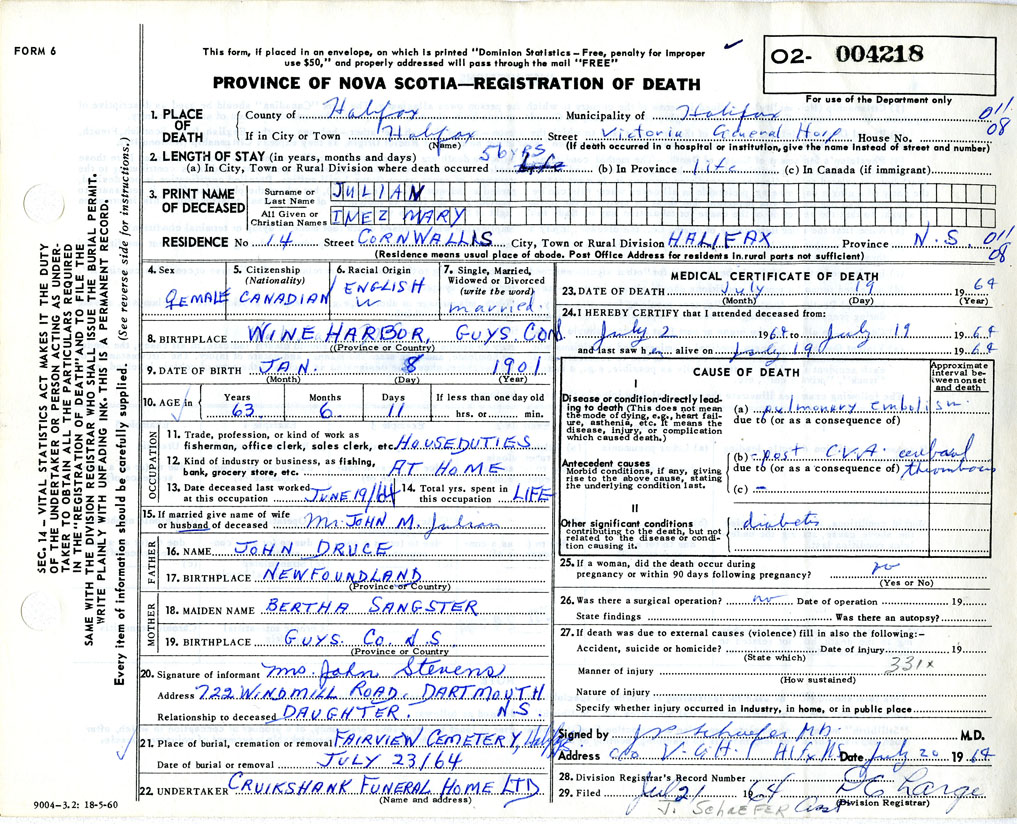 FORM 6
This form, if placed in an envelope, on which is printed "Dominion Statistics – Free, penalty for improper
use $50," and properly addressed will pass through the mail "FREE"
O2- 004218
PROVINCE OF NOVA SCOTIA—REGISTRATION OF DEATH
For use of the Department only
1. PLACE OF DEATH
County of Halifax Municipality of Halifax 011
If in City or Town Halifax Street Victoria General Hosp House No. 08
(Name) (If death occurred in a hospital or institution, give the name instead of street and number)
2. LENGTH OF STAY (in years, months and days) 56 yrs
(a) In City, Town or Rural Division where death occurred (b) In Province life (c) In Canada (if immigrant)
3. PRINT NAME OF DECEASED
Surname or Last Name JULIAN
All Given or Christian Names INEZ MARY
RESIDENCE No 14 Street CORNWALLIS City, Town or Rural Division HALIFAX Province N.S. 011
08
(Residence means usual place of abode. Post Office Address for residents in rural parts not sufficient)
4. Sex FEMALE
5. Citizenship (Nationality) CANADIAN
6. Racial Origin ENGLISH W
7. Single, Married, Widowed or Divorced (write the word) married
8. BIRTHPLACE WINE HARBOR, GUYS CO
(Province or Country)
9. DATE OF BIRTH JAN. 8 1901
(Month) (Day) (Year)
10. AGE in Years 63 Months 6 Days 11 If less than one day old hrs. or min.
OCCUPATION
11. Trade, profession, or kind of work as fisherman, office clerk, sales clerk, etc. HOUSEDUTIES
12. Kind of industry or business, as fishing, bank, grocery store, etc. AT HOME
13. Date deceased last worked at this occupation JUNE 19/64 14. Total yrs. spent in this occupation LIFE
15. If married give name of wife or husband of deceased Mr. JOHN M. Julian
FATHER
16. NAME JOHN DRUCE
17. BIRTHPLACE NEWFOUNDLAND
(Province or Country)
MOTHER
18. MAIDEN NAME BERTHA SANGSTER
19. BIRTHPLACE GUYS. CO. N.S
(Province or Country)
20. Signature of informant Mrs. John Stevens
Address 722 WINDMILL ROAD, DARTMOUTH
Relationship to deceased DAUGHTER. N.S.
21. Place of burial, cremation or removal FAIRVIEW CEMETERY, Halifax
Date of burial or removal JULY 23/64
22. UNDERTAKER CRUIKSHANK FUNERAL HOME LTD
(Name and address)
9004–3.2: 18-5-60
MEDICAL CERTIFICATE OF DEATH
23. DATE OF DEATH July 19 1964
(Month) (Day) (Year)
24. I HEREBY CERTIFY that I attended deceased from:
July 2 1964 to July 19 1964
and last saw her alive on July 19 1964
CAUSE OF DEATH
Approximate interval between onset and death
I
Disease or condition directly leading to death (This does not mean the mode of dying, e.g., heart failure, asthenia, etc. It means the disease, injury, or complication which caused death.)
(a) pulmonary embolism
due to (or as a consequence of)
Antecedent causes
Morbid conditions, if any, giving rise to the above cause, stating the underlying condition last.
(b) post C.V.A. cerebral
due to (or as a consequence of) thrombosis
(c) –
II
Other significant conditions contributing to the death, but not related to the disease or condition causing it.
diabetes
25. If a woman, did the death occur during pregnancy or within 90 days following pregnancy? no
(Yes or No)
26. Was there a surgical operation? no Date of operation 19
State findings Was there an autopsy?
27. If death was due to external causes (violence) fill in also the following:–
Accident, suicide or homicide? Date of injury 19
(State which)
331x
Manner of injury
(How sustained)
Nature of injury
Specify whether injury occurred in industry, in home, or in public place
Signed by J P Schaefer M.D. M.D.
Address c/o V.G.H. Hlfx NS Date July 20 1964
28. Division Registrar's Record Number
29. Filed Jul 21 1964
(Division Registrar)
J. SCHAEFER
SEC. 14 – VITAL STATISTICS ACT MAKES IT THE DUTY
OF THE UNDERTAKER OR PERSON ACTING AS UNDER-
TAKER TO OBTAIN ALL THE PARTICULARS REQUIRED
IN THE "REGISTRATION OF DEATH" AND TO FILE THE
SAME WITH THE DIVISION REGISTRAR WHO SHALL ISSUE THE BURIAL PERMIT.
WRITE PLAINLY WITH UNFADING INK. THIS IS A PERMANENT RECORD.
Every item of information should be carefully supplied. (See reverse side for instructions.)